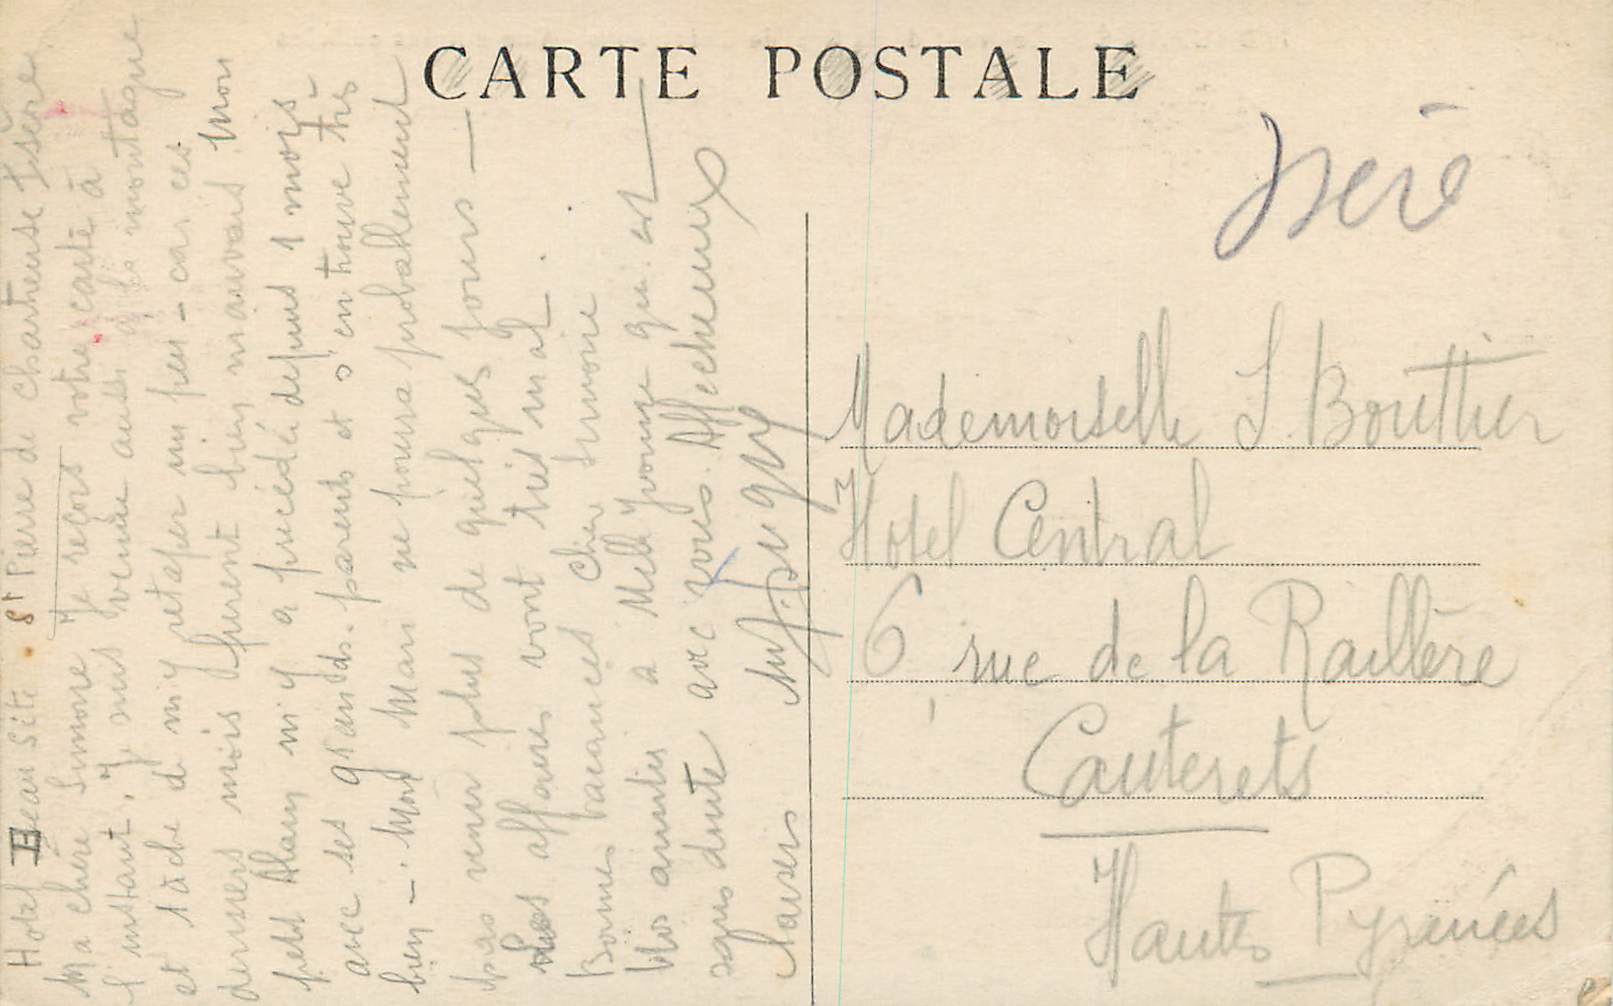 CARTE POSTALE
Isère
Hotel Beau Site. St Pierre de Chartreuse Isère
Ma chère Simone Je reçois votre carte à
l'instant. Je suis venue aussi à la montagne
et tâche d m'y retaper un peu - car ces
derniers mois furent bien mauvais Mon
petit Alain m'y a précédé depuis 1 mois
avec ses grands-parents et s'en trouve très
bien -. Mon Mari ne pourra probablement
pas venir plus de quelques jours —
les affaires vont très mal.
Bonnes vacances Chère Simone
Vos amitiés à Melle Yvonne qui est
sans doute avec vous. Affectueux
baisers
Mademoiselle S. Bouttier
Hotel Central
6, rue de la Raillère
Cauterets
Hautes Pyrénées